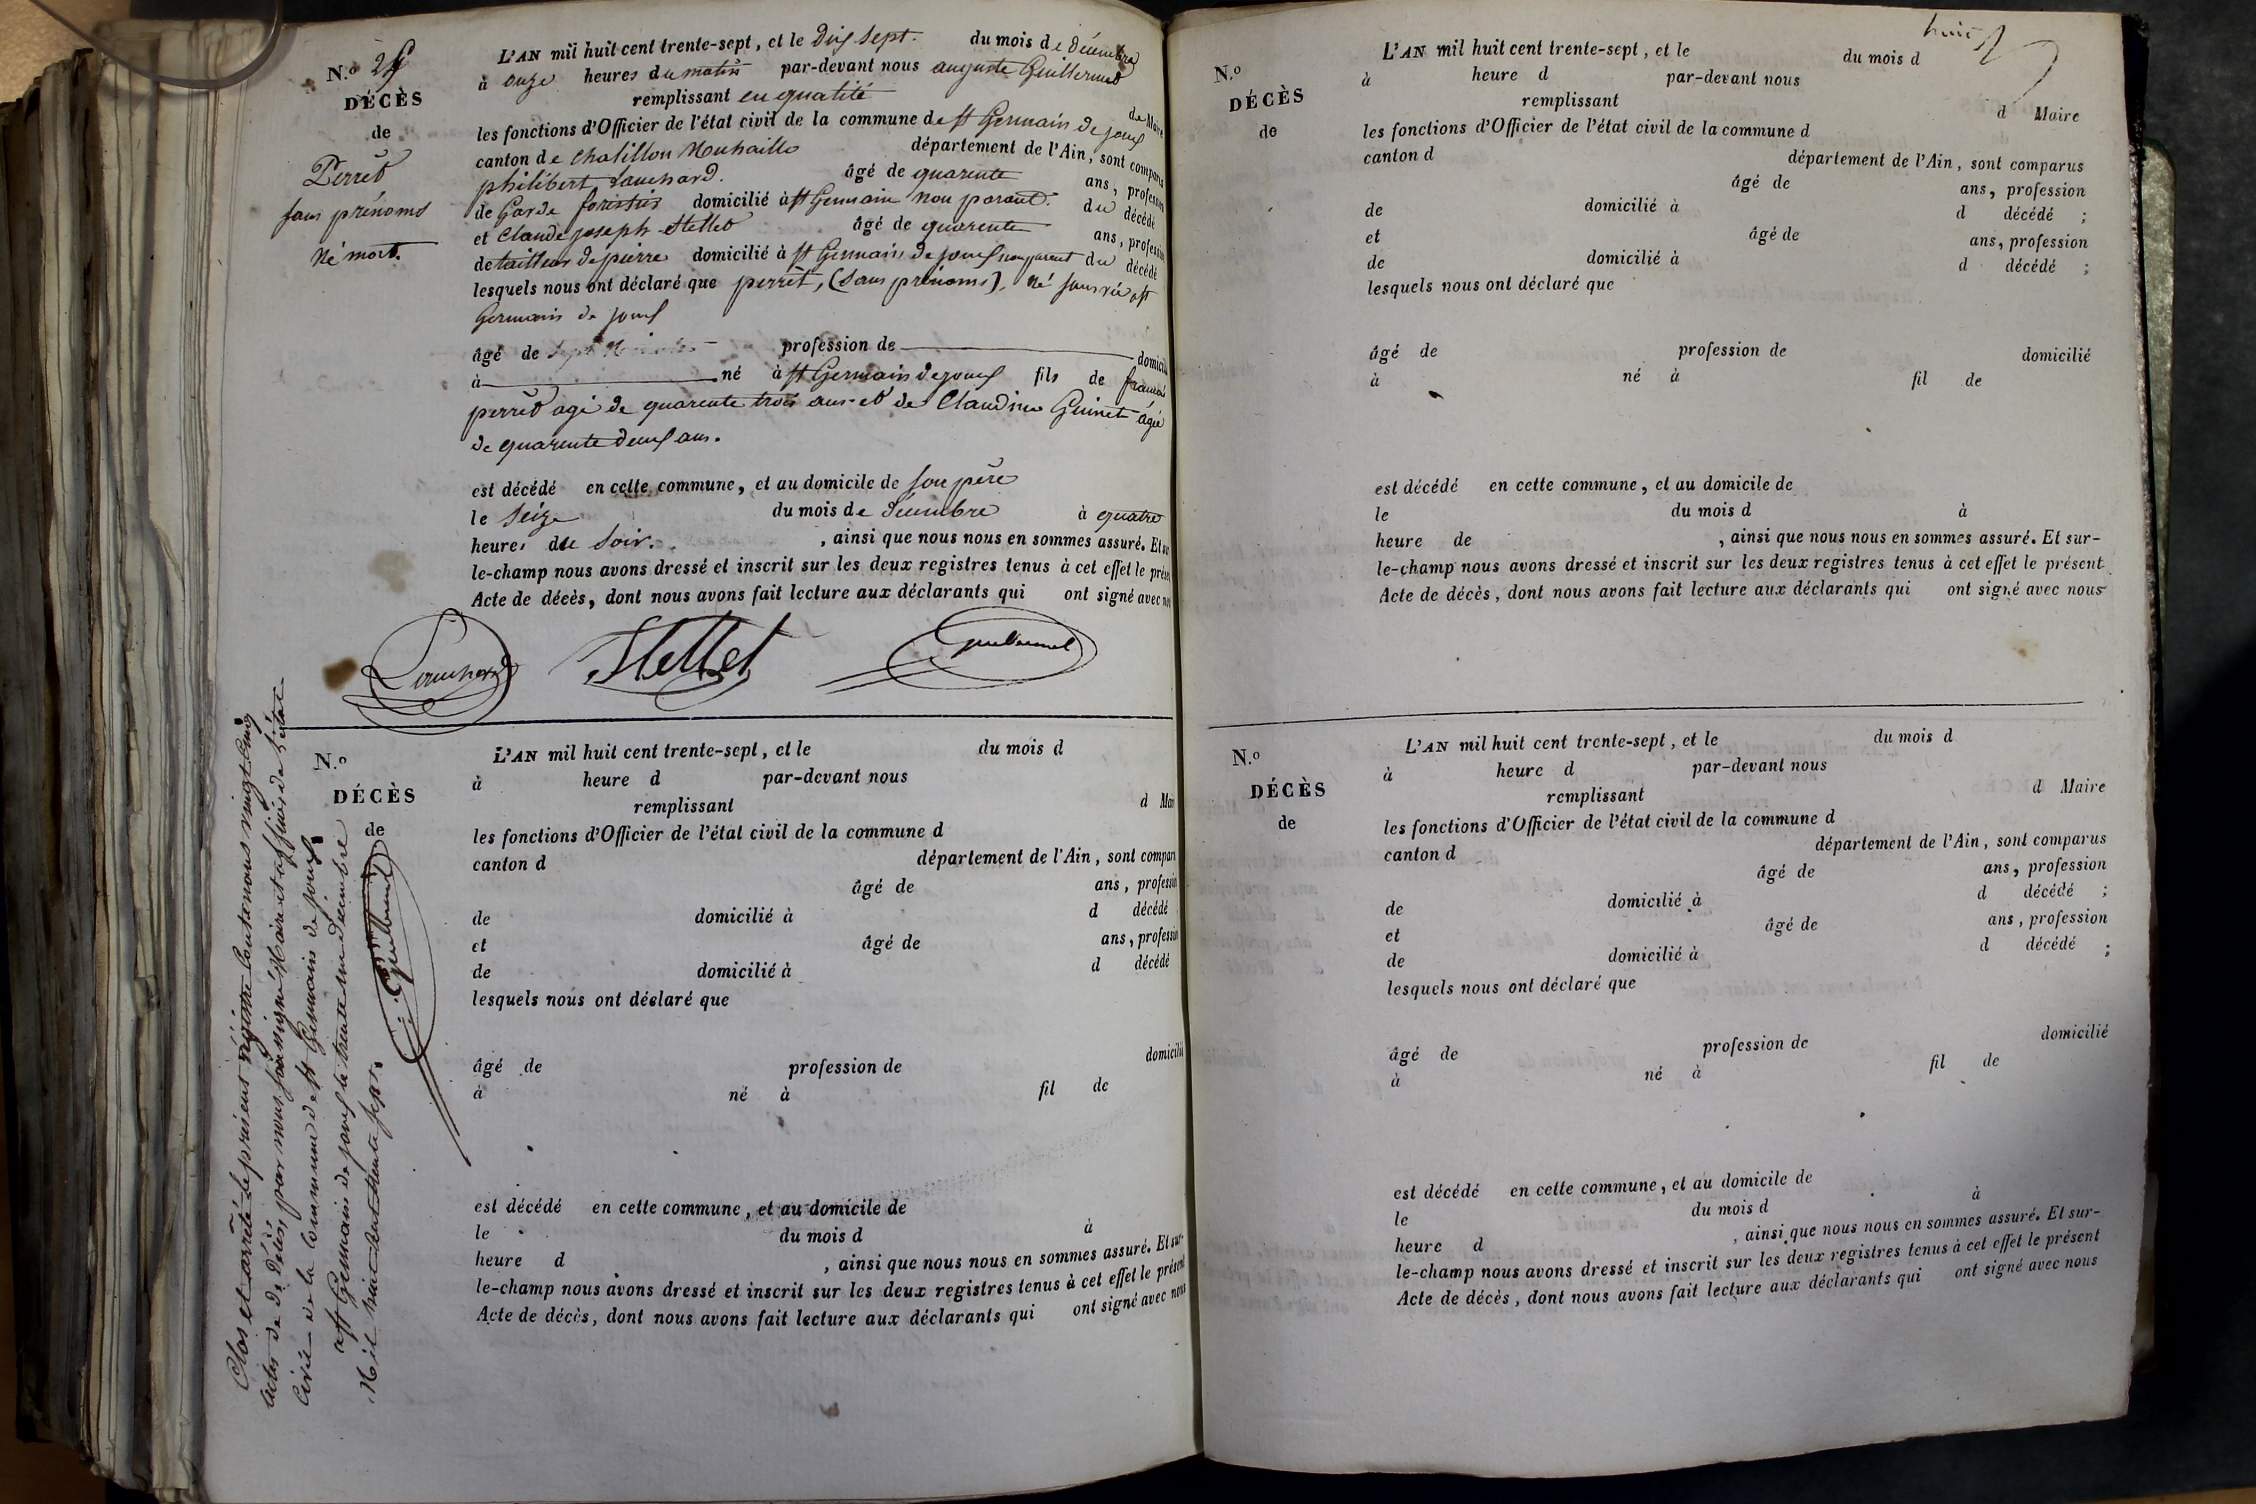 N.o 25
DÉCÈS
de
Perret
sans prénoms
né mort.
L'AN mil huit cent trente-sept, et le dix sept. du mois de décembre
à onze heures du matin par-devant nous auguste Guillermet
remplissant en qualité de Maire
les fonctions d'Officier de l'état civil de la commune de st Germain de joux
canton de chatillon Michaille département de l'Ain, sont comparus
philibert Louchard. âgé de quarente ans, profession
de Garde forestier domicilié à st Germain non parent. du décédé
et Claude joseph Stellet âgé de quarente ans, profession
de tailleur de pierre domicilié à st Germain de joux non parent du décédé
lesquels nous ont déclaré que perret, (sans prénoms), né sans vie a st
Germain de joux
âgé de profession de domicilié
à né à st Germain de joux fils de françois
perret agé de quarente trois ans et de Claudine Guinet âgée
de quarente deux ans.
est décédé en cette commune, et au domicile de son père
le seize du mois de décembre à quatre
heures du soir. , ainsi que nous nous en sommes assuré. Et sur
le-champ nous avons dressé et inscrit sur les deux registres tenus à cet effet le présent
Acte de décès, dont nous avons fait lecture aux déclarants qui ont signé avec nous
Louchard Stellet Guillermet
Clos et arrêté le présent régistre Contenant vingt cinq
actes de Décès, par nous soussigné Maire et officier de l'état
Civil de la Commune de st Germain de joux.
a st Germain de joux le trente un Décembre
Mil huit cent trente sept.
Guillermet
N.o
DÉCÈS
de
L'AN mil huit cent trente-sept, et le du mois d
à heure d par-devant nous
remplissant d Mai
les fonctions d'Officier de l'état civil de la commune d
canton d département de l'Ain, sont comparu
âgé de ans, profession
de domicilié à d décédé
et âgé de ans, profession
de domicilié à d décédé
lesquels nous ont déclaré que
âgé de profession de domicilié
à né à fil de
est décédé en cette commune, et au domicile de
le du mois d à
heure d , ainsi que nous nous en sommes assuré. Et sur-
le-champ nous avons dressé et inscrit sur les deux registres tenus à cet effet le présent
Acte de décès, dont nous avons fait lecture aux déclarants qui ont signé avec nous
huit
N.o
DÉCÈS
de
L'AN mil huit cent trente-sept, et le du mois d
à heure d par-devant nous
remplissant d Maire
les fonctions d'Officier de l'état civil de la commune d
canton d département de l'Ain, sont comparus
âgé de ans, profession
de domicilié à d décédé ;
et âgé de ans, profession
de domicilié à d décédé ;
lesquels nous ont déclaré que
âgé de profession de domicilié
à né à fil de
est décédé en cette commune, et au domicile de
le du mois d à
heure de , ainsi que nous nous en sommes assuré. Et sur-
le-champ nous avons dressé et inscrit sur les deux registres tenus à cet effet le présent
Acte de décès, dont nous avons fait lecture aux déclarants qui ont signé avec nous
N.o
DÉCÈS
de
L'AN mil huit cent trente-sept, et le du mois d
à heure d par-devant nous
remplissant d Maire
les fonctions d'Officier de l'état civil de la commune d
canton d département de l'Ain, sont comparus
âgé de ans, profession
de domicilié à d décédé ;
et âgé de ans, profession
de domicilié à d décédé ;
lesquels nous ont déclaré que
âgé de profession de domicilié
à né à fil de
est décédé en cette commune, et au domicile de
le du mois d à
heure d , ainsi que nous nous en sommes assuré. Et sur-
le-champ nous avons dressé et inscrit sur les deux registres tenus à cet effet le présent
Acte de décès, dont nous avons fait lecture aux déclarants qui ont signé avec nous